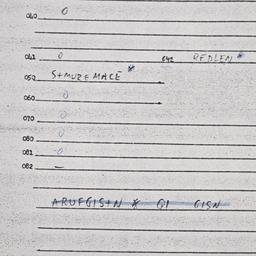 040 0
041 0 042 REDLEN *
050 S+MUZE MACE *
060 0
070 0
080 0
081 0
082 –
ARUFGIS+N * GI GISN